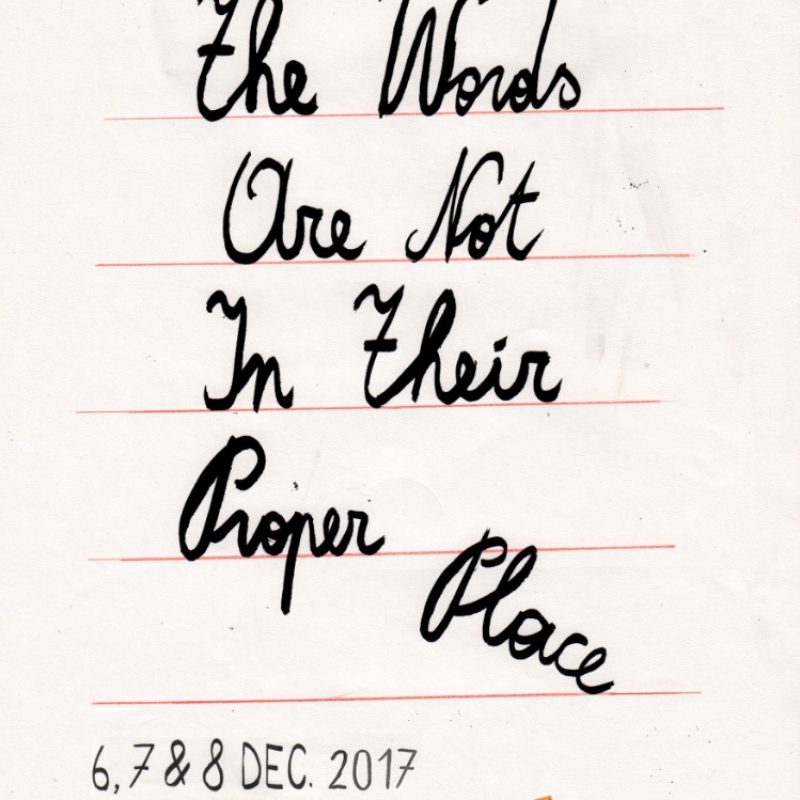 The Words
Are Not
In Their
Proper
Place
6,7 & 8 DEC. 2017